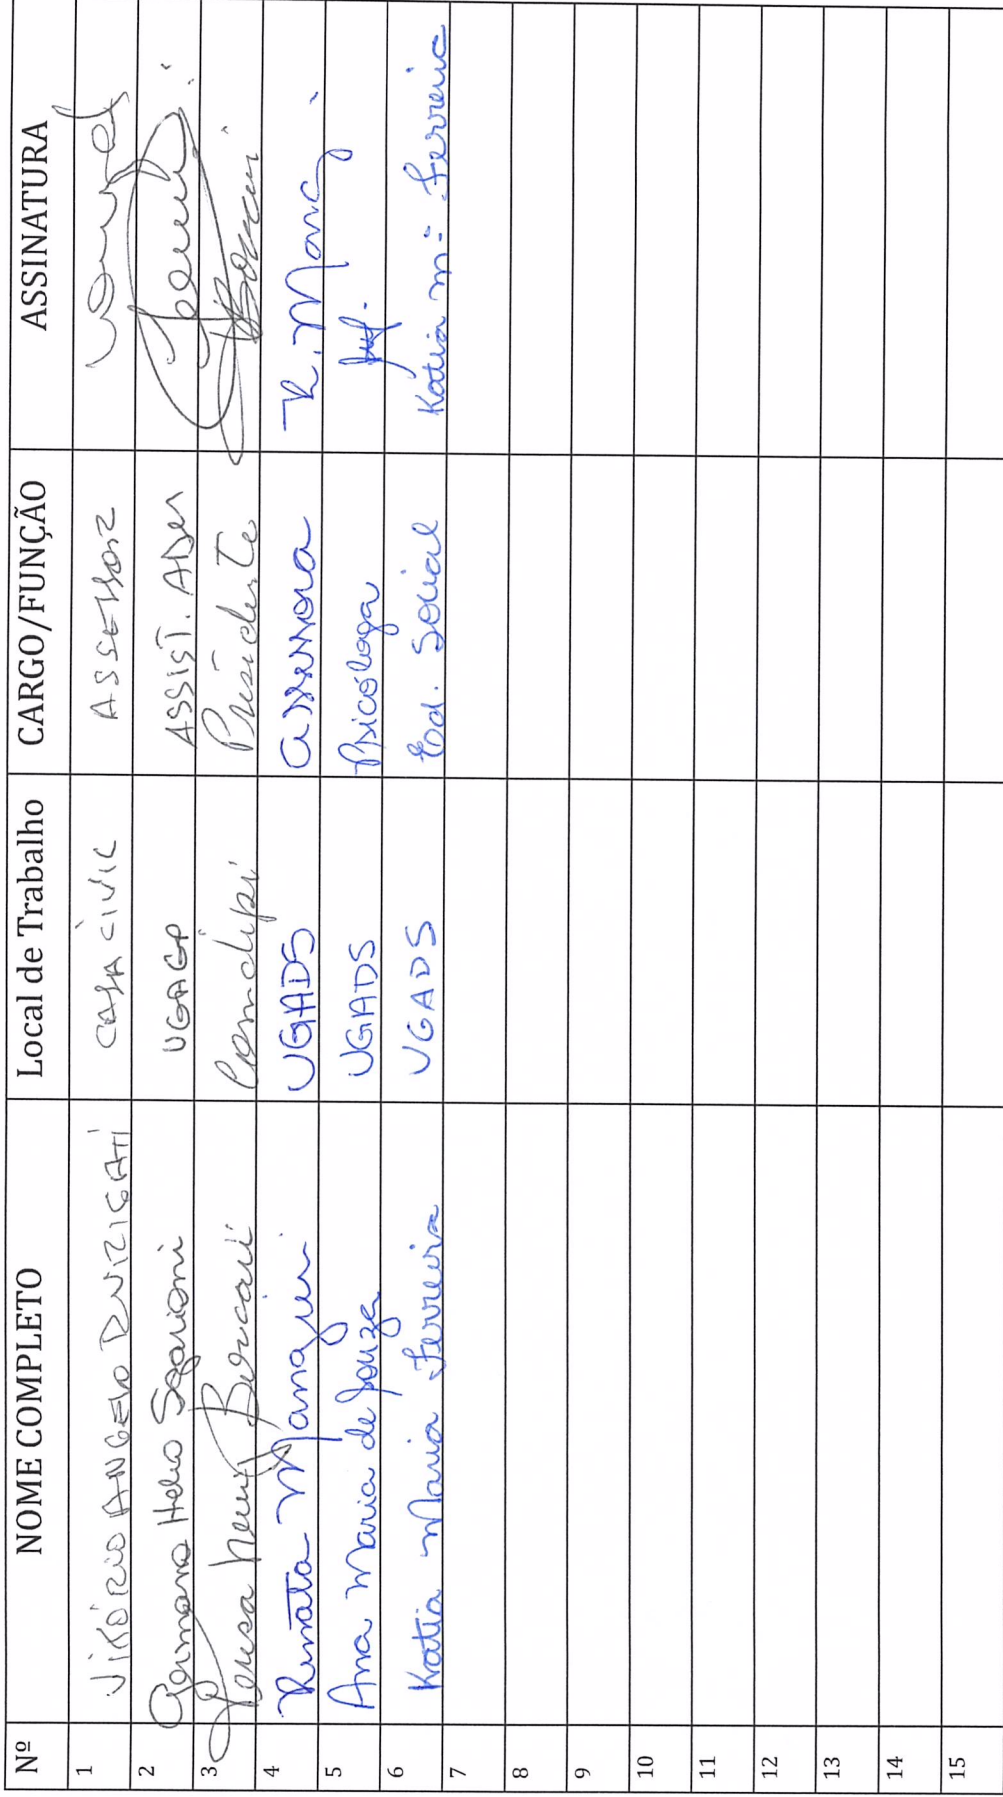 Nº NOME COMPLETO Local de Trabalho CARGO/FUNÇÃO ASSINATURA
1 VITÓRIO ANGELO DURIGATI CASA CIVIL ASSESSOR
2 Germano Helio Sgarioni UGAGP ASSIST. ADM
3 Comdipi Presidente
4 Renata Mangini UGADS assessora R. Mang
5 Ana Maria de Souza UGADS Psicóloga
6 Katia Maria Ferreira UGADS Ed. Social Katia Mª Ferreira
7
8
9
10
11
12
13
14
15